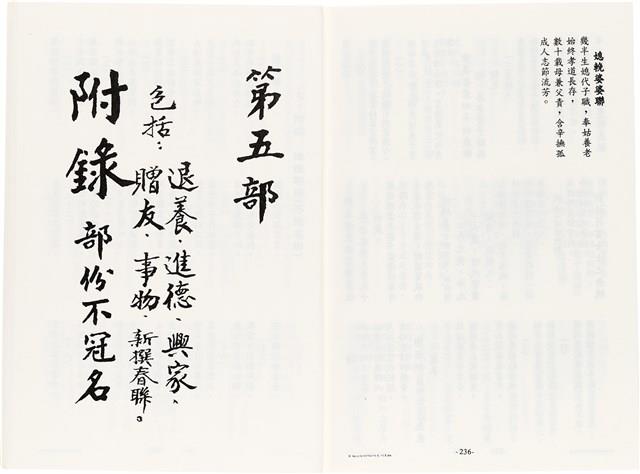 媳輓婆婆聯
幾半生媳代子職，奉姑養老
始終孝道長存，
數十載母兼父責，含辛撫孤
成人志節流芳。
-236-
第五部
包括：退養、進德、興家、
贈友、事物、新撰春聯。
附錄部份不冠名